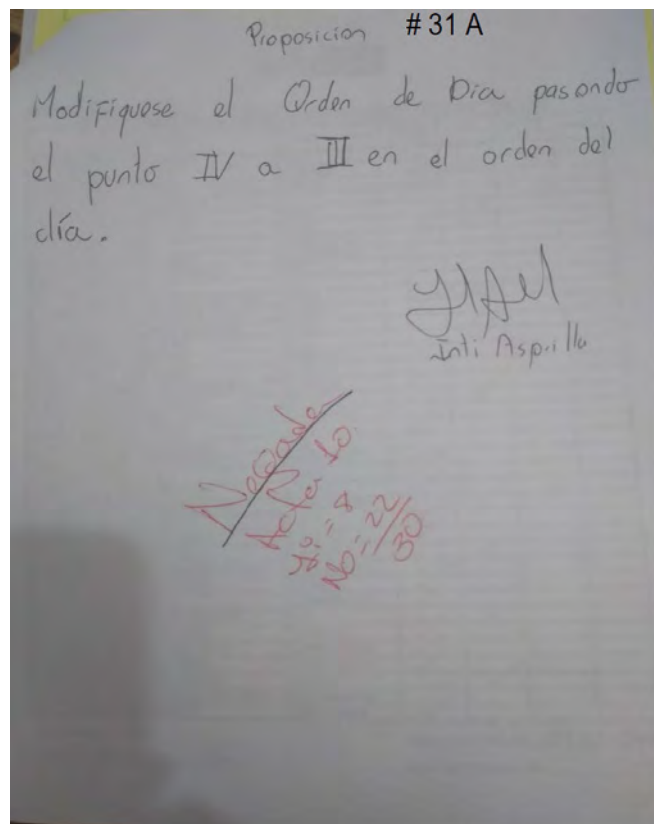 Proposicion # 31 A
Modifiquese el Orden de Dia pasando
el punto IV a III en el orden del
día.
Inti Asprilla
Negado
Acta 10
Si = 8
No = 22
30